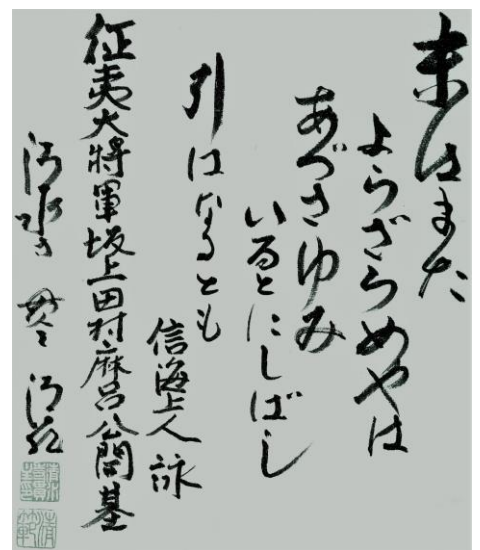 末はまた
よらざらめやは
あづさゆみ
いるとにしばし
引はなるとも
信海上人 詠
征夷大將軍坂上田村麻呂公開基
清水寺 貫主 清範
清範